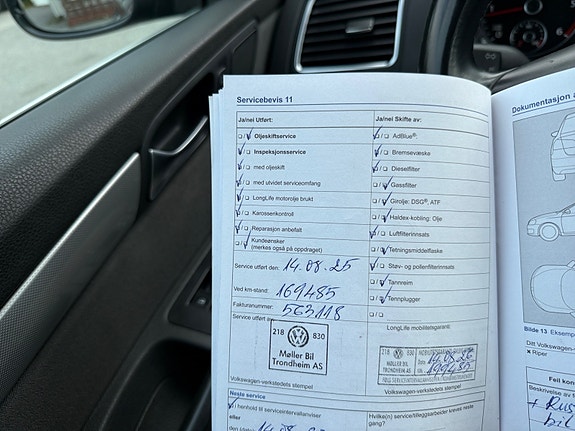 Servicebevis 11
Dokumentasjon a
Ja/nei Utført:
Ja/nei Skifte av:
Oljeskiftservice
AdBlue®:
Inspeksjonsservice
Bremsevæske
med oljeskift
Dieselfilter
med utvidet serviceomfang
Gassfilter
LongLife motorolje brukt
Girolje: DSG®, ATF
Karosserikontroll
Haldex-kobling: Olje
Reparasjon anbefalt
Luftfilterinnsats
Kundeønsker
(merkes også på oppdraget)
Tetningsmiddelflaske
Service utført den: 14.08.25
Støv- og pollenfilterinnsats
Ved km-stand: 169485
Tannreim
Fakturanummer: 563118
Tennplugger
Service utført av:
LongLife mobilitetsgaranti:
218 830
Møller Bil
Trondheim AS
218 830
MØLLER BIL
TRONDHEIM AS
14.08.26
199485
Volkswagen-verkstedets stempel
Volkswagen-verkstedets stempel
Neste service
I henhold til serviceintervallanviser
eller
Hvilke(n) service/tilleggsarbeider kreves neste
gang?
14.08.26
Bilde 13 Eksemp
Ditt Volkswagen-
× Riper
Feil kon
Beskrivelse av
+ Rus
bil